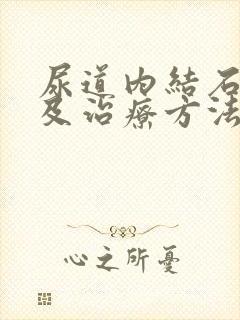 尿道内結石
及治療方法
心之所憂